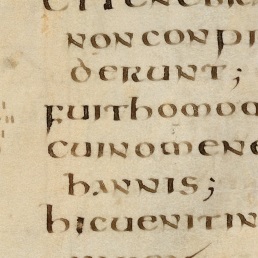 NONCONPI
DERUNT;
FUITHOMO
CUINOMENE
hANNIS;
hICUENITIN